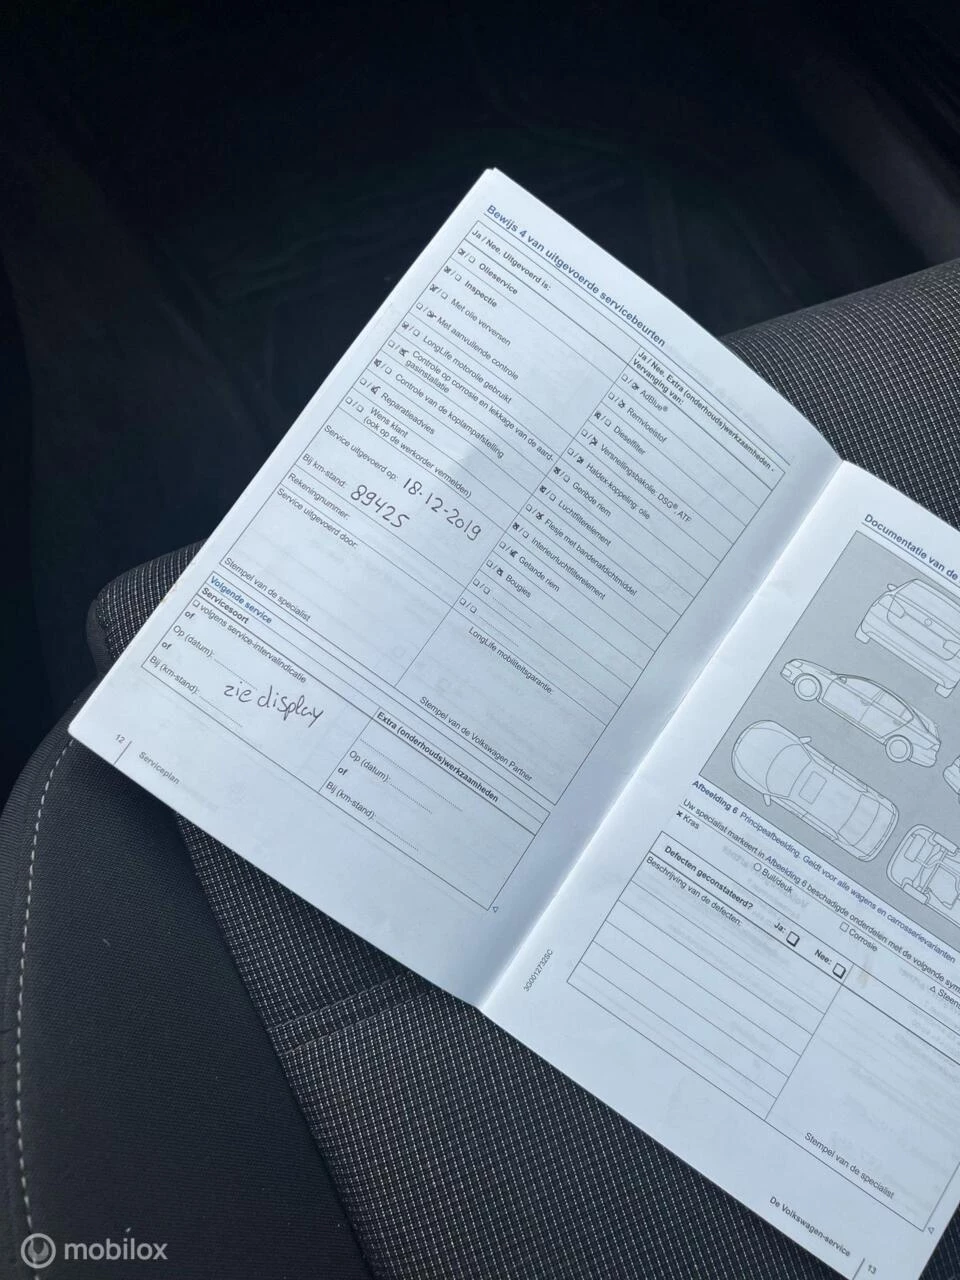 Bewijs 4 van uitgevoerde servicebeurten
Ja / Nee. Uitgevoerd is:
Olieservice
Inspectie
Met olie verversen
Met aanvullende controle
LongLife motorolie gebruikt
Controle op corrosie en lekkage van de aard-
gasinstallatie
Controle van de koplampafstelling
Reparatieadvies
Wens klant
(ook op de werkorder vermelden)
Service uitgevoerd op: 18-12-2019
Bij km-stand: 89425
Rekeningnummer:
Service uitgevoerd door:
Stempel van de specialist
Ja / Nee. Extra (onderhouds)werkzaamheden -
Vervanging van:
AdBlue®
Remvloeistof
Dieselfilter
Versnellingsbakolie, DSG®, ATF
Haldex-koppeling: olie
Geribde riem
Luchtfilterelement
Flesje met bandenafdichtmiddel
Interieurluchtfilterelement
Getande riem
Bougies
LongLife mobiliteitsgarantie:
Stempel van de Volkswagen Partner
Volgende service
Servicesoort
volgens service-intervalindicatie
of
Op (datum):
of
Bij (km-stand):
zie display
Extra (onderhouds)werkzaamheden
Op (datum):
of
Bij (km-stand):
12
Serviceplan
Documentatie van de
Afbeelding 6 Principeafbeelding. Geldt voor alle wagens en carrosserievarianten
Uw specialist markeert in Afbeelding 6 beschadigde onderdelen met de volgende sym
× Kras
Buil/deuk
Corrosie
Steens
Defecten geconstateerd?
Ja:
Nee:
Beschrijving van de defecten:
Stempel van de specialist
3G0012732SC
De Volkswagen-service
13
mobilox